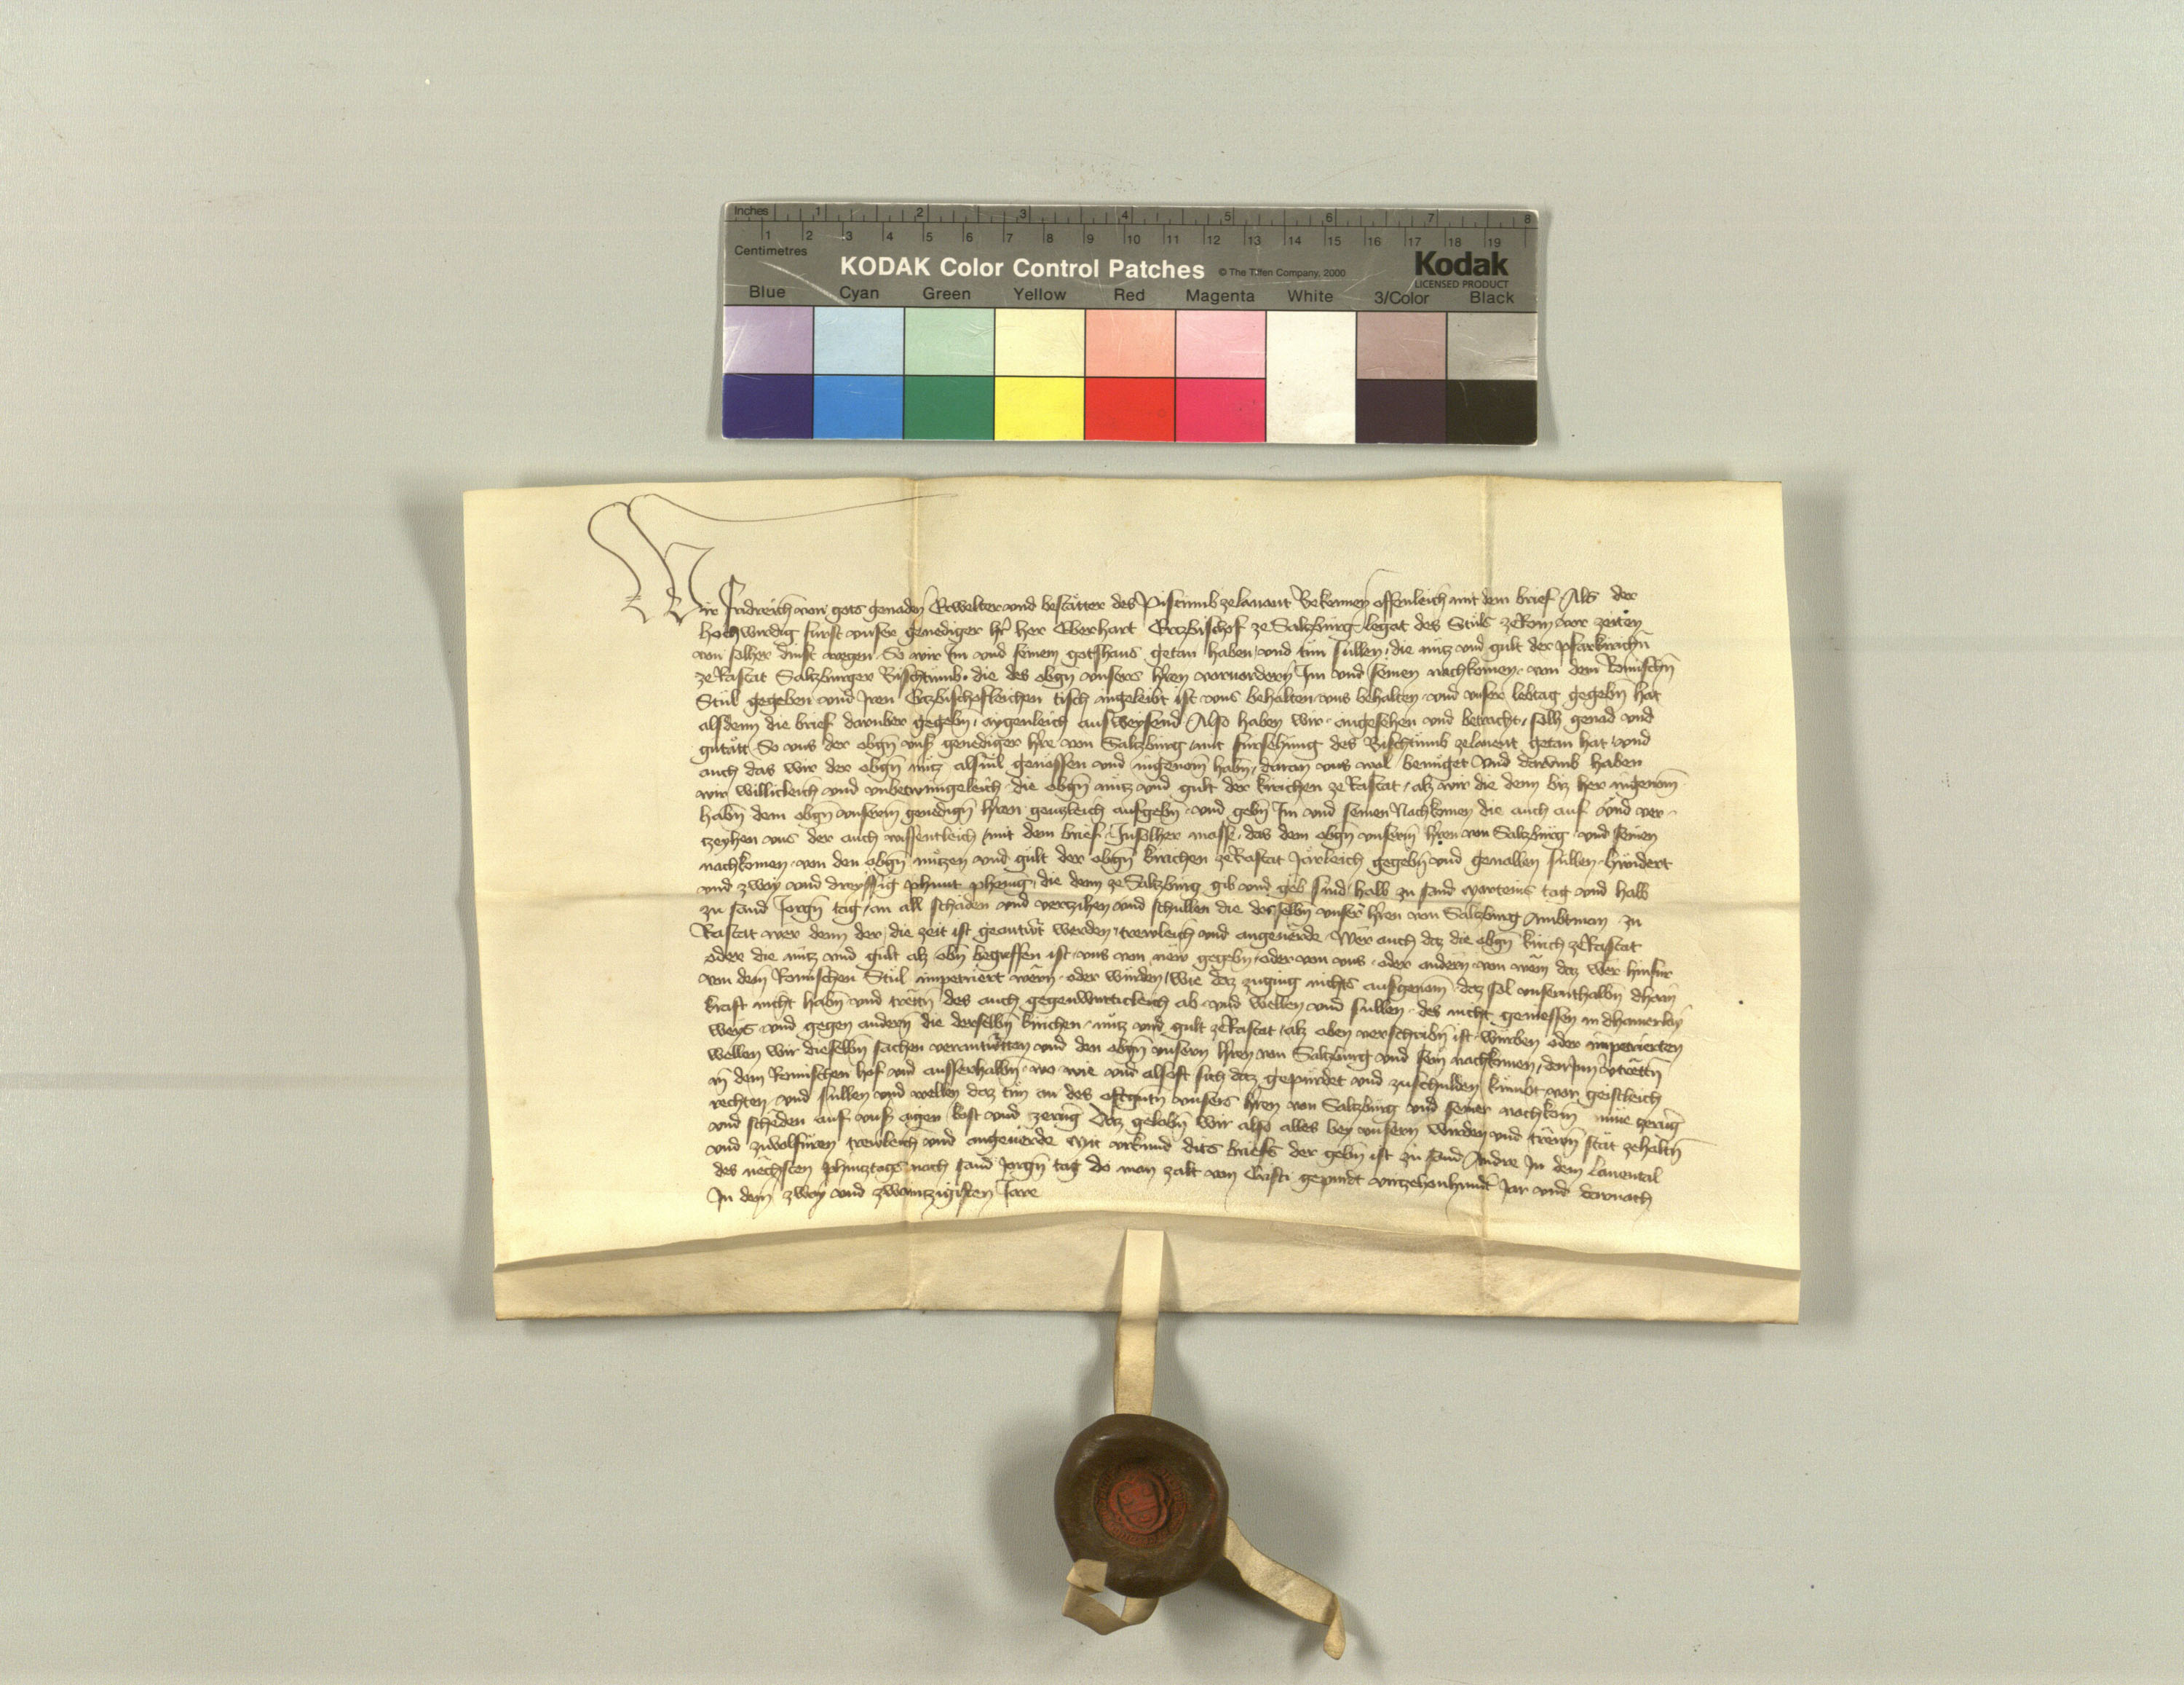 Inches 1 2 3 4 5 6 7 8
1 2 3 4 5 6 7 8 9 10 11 12 13 14 15 16 17 18 19
Centimetres
KODAK Color Control Patches © The Tiffen Company, 2000 Kodak
LICENSED PRODUCT
Blue Cyan Green Yellow Red Magenta White 3/Color Black
Wir Fridreich von gots genaden Erwelter und bestätter des Pistumb zelauant Bekennen offenleich mit dem brief Als der
hochwirdig furst unser genediger hr̄ her Eberhart Ertzbischof ze Saltzburg legat des Stuls ze Rom vor zeiten
von solher dinst wegen So wir Im und seinem gotshaus getan haben und tun sullen die nutz und gult der pfarkirichn̄
ze Rastat Saltzburger Bischtumb die des obgn̄ unsers hr̄en voruordern Im und seinen nachkomen von dem Romischn̄
Stul gegeben und Iren Ertzbischofleichen tisch ingeleibt ist uns behalten uns behalten und unser lebtag gegebn̄ hat
alsdenn die brief daruber gegebn̄ aygenleich ausweysend Also haben wir angesehen und betracht solh genad und
guttät So uns der obgn̄ uns̄ genediger hr̄re von Saltzburg mit fursehung des Bischtumb zelauent getan hat und
auch das wir der obgn̄ nutz alsuil genossen und ingenom̄ habn̄ daran uns wol benuget Und darumb haben
wir willicleich und unbetwungeleich die obgn̄ nutz und gult der kirichen ze Rastat alz wir die denn biz her ingenom̄
habn̄ dem obgn̄ unserm genedign̄ hr̄ren gentzleich aufgebn̄ und gebn̄ Im und seinen Nachkomen die auch auf und ver
tzeyhen uns der auch wissentleich mit dem brief Insolher masse das dem obgn̄ unserm hr̄ren von Saltzburg und seinen
nachkomen von den obgn̄ nutzen und gult der obgn̄ kirichen ze Rastat Järleich gegebn̄ und geuallen sullen hundert
und zway und dreyssig phunt phenig die denn ze Saltzburg gib und geb sind halb zu sand marteins tag und halb
zu sand Jorgn̄ tag an all schäden und vertzihen und schullen die desselbn̄ unser hr̄ren von Saltzburg Ambtman zu
Rastat wer denn der die zeit ist geantwrt werden trewleich und angeuërde Wër auch daz die obgn̄ kirich ze Rastat
oder die nutz und gult alz obn̄ begriffen ist uns von new gegebn̄ oder von uns oder andern von wem daz wër hinfur
von dem Romischen Stul impetriert wärn oder wurden wie daz zuging nichts ausgenom̄ daz sol unsernthalbn̄ dhain
kraft nicht habn̄ und tretn̄ des auch gegenwurticleich ab und wellen und sullen des nicht geniessen in dhainerlay
weys und gegen andern die derselbn̄ kirichen nutz und gult ze Rastat alz oben verschribn̄ ist wurben oder impetrierten
wellen wir dieselbn̄ sachen verantwrtten und den obgn̄ unsern hr̄ren von Saltzburg und sein nachkomen darInn vertretn̄
in dem Romischen hof und ausserhalbn̄ wo wie und alsoft sich daz gepurdet und zuschulden kumbt von geistleich
rechten und sullen und wellen daz tun an des oftgn̄ unsers hr̄ren von Saltzburg und seiner nachkom̄ müe zerüg
und scheden auf uns̄ aigen kost und zerüg Daz gelobn̄ wir also alles bey unsern wirden und trewn̄ stät zehaltn̄
und zuuolfüren trewleich und angeuërde Mit urkund dits briefs der gebn̄ ist zu sand Andre In dem Lauental
des nëchsten phintztags nach sand Jorgn̄ tag do man zalt von Cristi gepurdt virtzehenhundt Jar und darnach
In dem zway und zwaintzigisten Jare